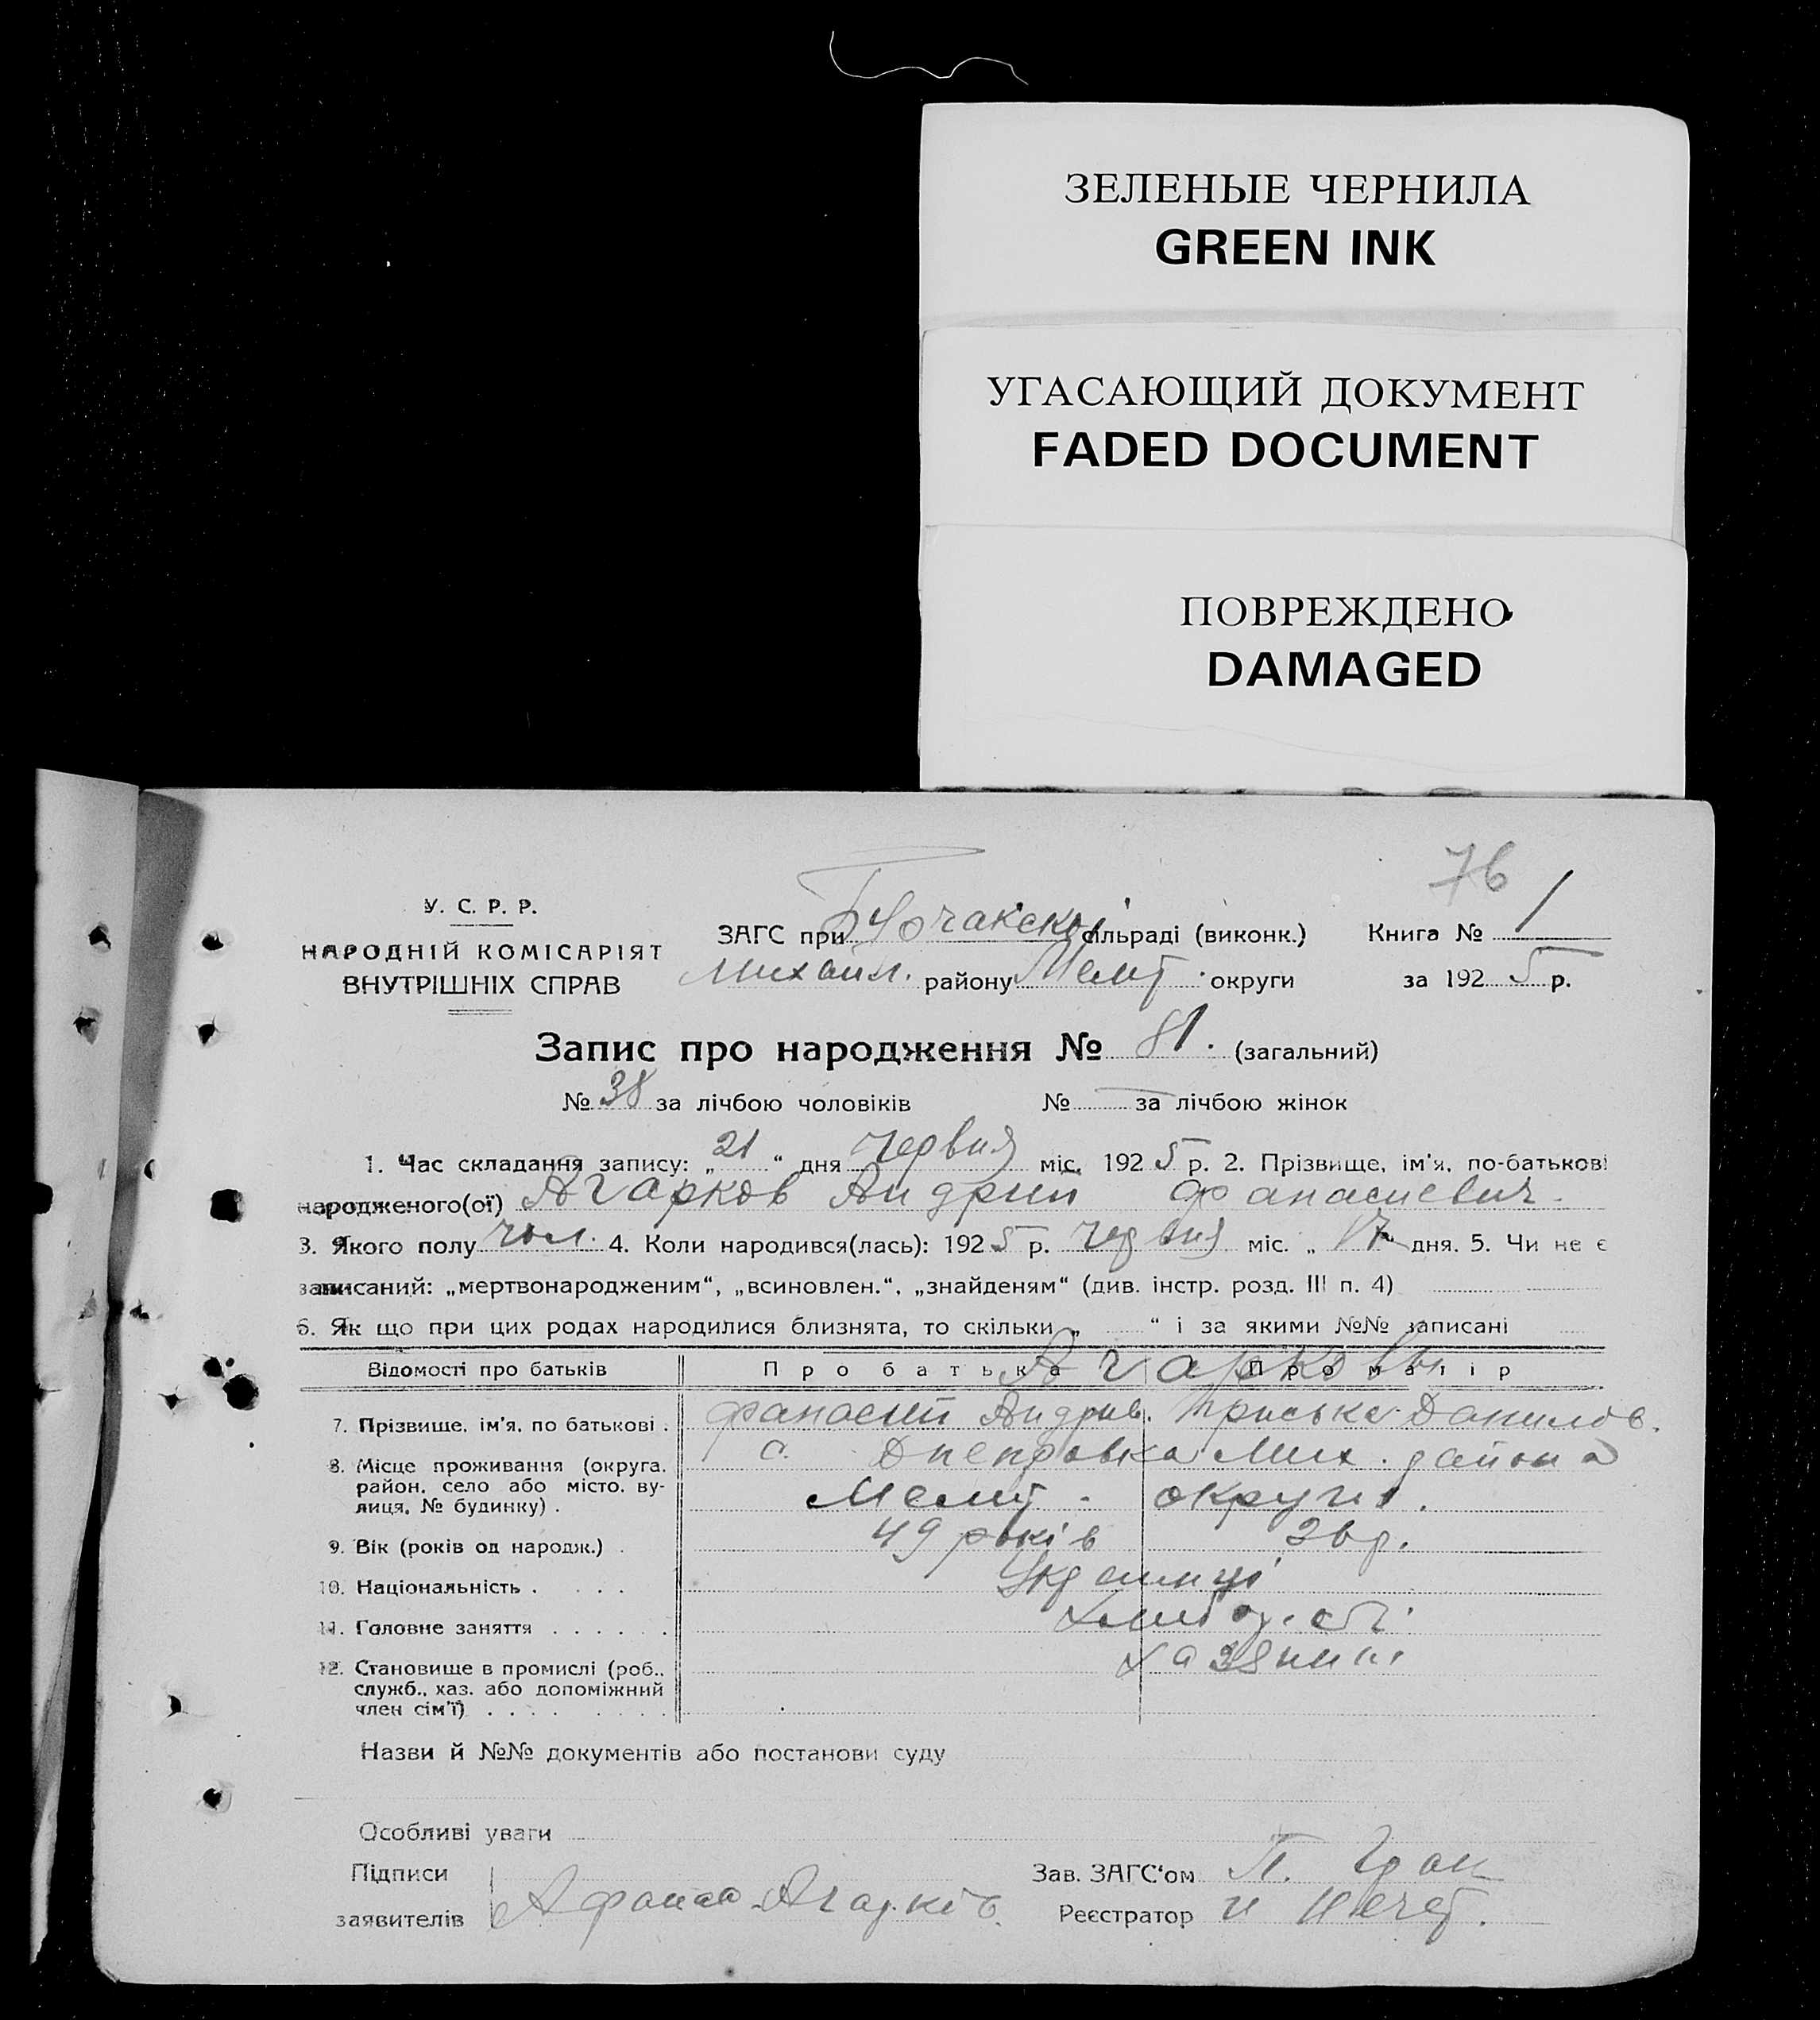 ЗЕЛЕНЫЕ ЧЕРНИЛА
GREEN INK
УГАСАЮЩИЙ ДОКУМЕНТ
FADED DOCUMENT
ПОВРЕЖДЕНО
DAMAGED
76
У. С. Р. Р.
НАРОДНІЙ КОМІСАРІЯТ
ВНУТРІШНІХ СПРАВ
ЗАГС при сільраді (виконк.) Книга № 1
Михайл. району Меліт. округи за 1925 р.
Запис про народження № 81. (загальний)
№ 38 за лічбою чоловіків № — за лічбою жінок
1. Час складання запису: „21“ дня червня міс. 1925 р. 2. Прізвище, ім'я, по-батькові
народженого(ої) Агарков Андрий Фанасиевич
3. Якого полу чол. 4. Коли народився(лась): 1925 р. червня міс. „17“ дня. 5. Чи не є
записаний: „мертвонародженим“, „всиновлен.“, „знайденям“ (див. інстр. розд. III п. 4)
6. Як що при цих родах народилися близнята, то скільки „ “ і за якими №№ записані
Відомості про батьків Про батька Про матір
Агаркови
7. Прізвище, ім'я, по батькові . Фанасий Андрив. Приська Данилов.
8. Місце проживання (округа, район, село або місто, вулиця, № будинку) . с. Днепровка Мих. района
Меліт. округи.
9. Вік (років од народж.) . 49 років 36 р.
10. Національність . . . . Украинці
11. Головне заняття . . . . . .
12. Становище в промислі (роб., служб., хаз. або допоміжний член сім'ї) . . . . . . . . хазяини
Назви й №№ документів або постанови суду
Особливі уваги
Підписи
заявителів Афанас Агарків.
Зав. ЗАГС'ом П.
Реєстратор